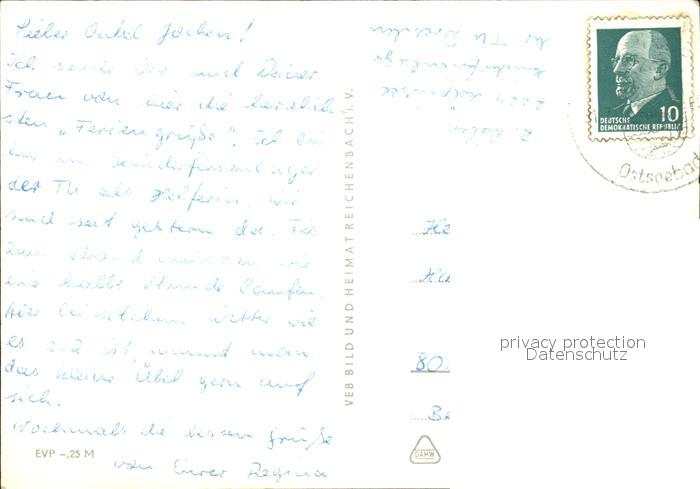 Lieber Onkel Jochen!
Ich sende Dir und Deiner
Frau von hier die herzlich-
sten „Feriengrüße“. Ich bin
hier im Kinderferienlager
der TU als Helferin. Wir
sind seit gestern da. Bis
zum Strand müssen wir
eine halbe Stunde laufen.
Hier bei solchem Wetter wie
es z.Z ist, nimmt man
das kleine Übel gern auf
sich.
Nochmals die besten Grüße
von Eurer Regina
EVP –,25 M
VEB BILD UND HEIMAT REICHENBACH I. V.
R.
Kinderferienlager
der TU Dresden
DEUTSCHE
DEMOKRATISCHE REPUBLIK
10
Ostseebad
He
Ha
80
Be
privacy protection
Datenschutz
DAHW